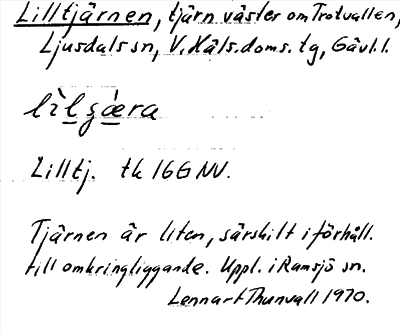 Lilltjärnen, tjärn väster om Trotvallen,
Ljusdals sn, V. Häls. doms. tg, Gävl. l.
lìlʒæ̀ra
Lilltj. tk 16G NV.
Tjärnen är liten, särskilt i förhåll.
till omkringliggande. Uppl. i Ramsjö sn.
Lennart Thunvall 1970.